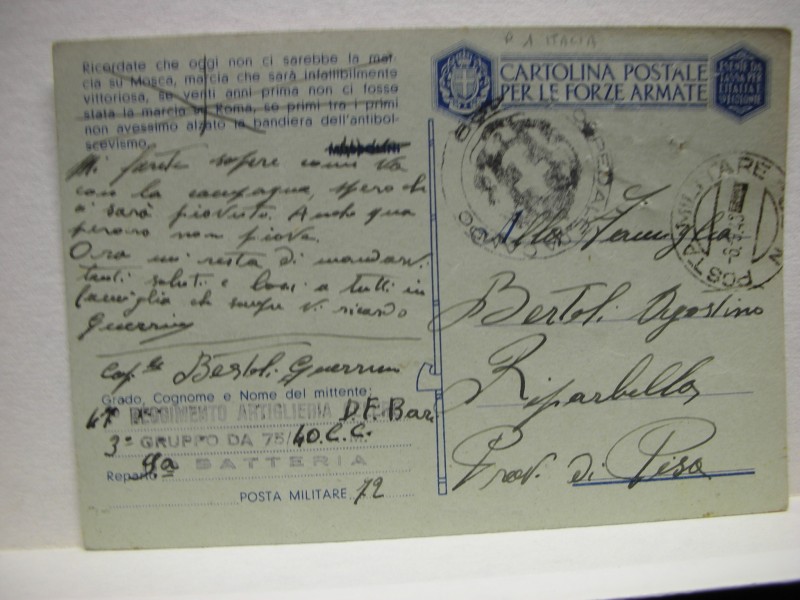 P A ITALIA
Ricordate che oggi non ci sarebbe la mar-
cia su Mosca, marcia che sarà infallibilmente
vittoriosa, se venti anni prima non ci fosse
stata la marcia su Roma, se primi tra i primi
non avessimo alzato la bandiera dell'antibol-
scevismo.
CARTOLINA POSTALE
PER LE FORZE ARMATE
ESENTE DA
TASSA PER
L'ITALIA E
Mi farete sapere come va
con la campagna, spero che
ci sarà piovuto. Anche qua
non piove.
Ora mi resta di mandarvi
tanti saluti e baci a tutti in
famiglia che sempre vi ricordo
Guerrino
POSTA MILITARE
OSPEDALE
Alla Famiglia
Bertoli Agostino
Riparbella
Prov. di Pisa
Bertoli Guerrino
Grado, Cognome e Nome del mittente:
47° REGGIMENTO ARTIGLIERIA D.F. Bari
3° GRUPPO DA 75/40.C.C.
9a BATTERIA
Reparto
POSTA MILITARE 72